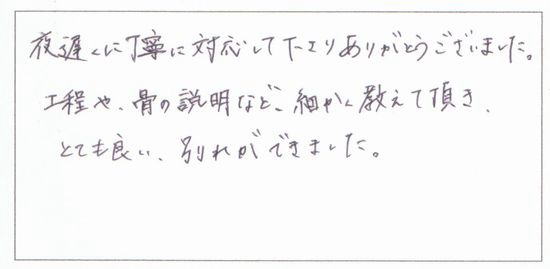 夜遅くに丁寧に対応して下さりありがとうございました。
工程や、骨の説明など、細かく教えて頂き、
とても良い、別れができました。